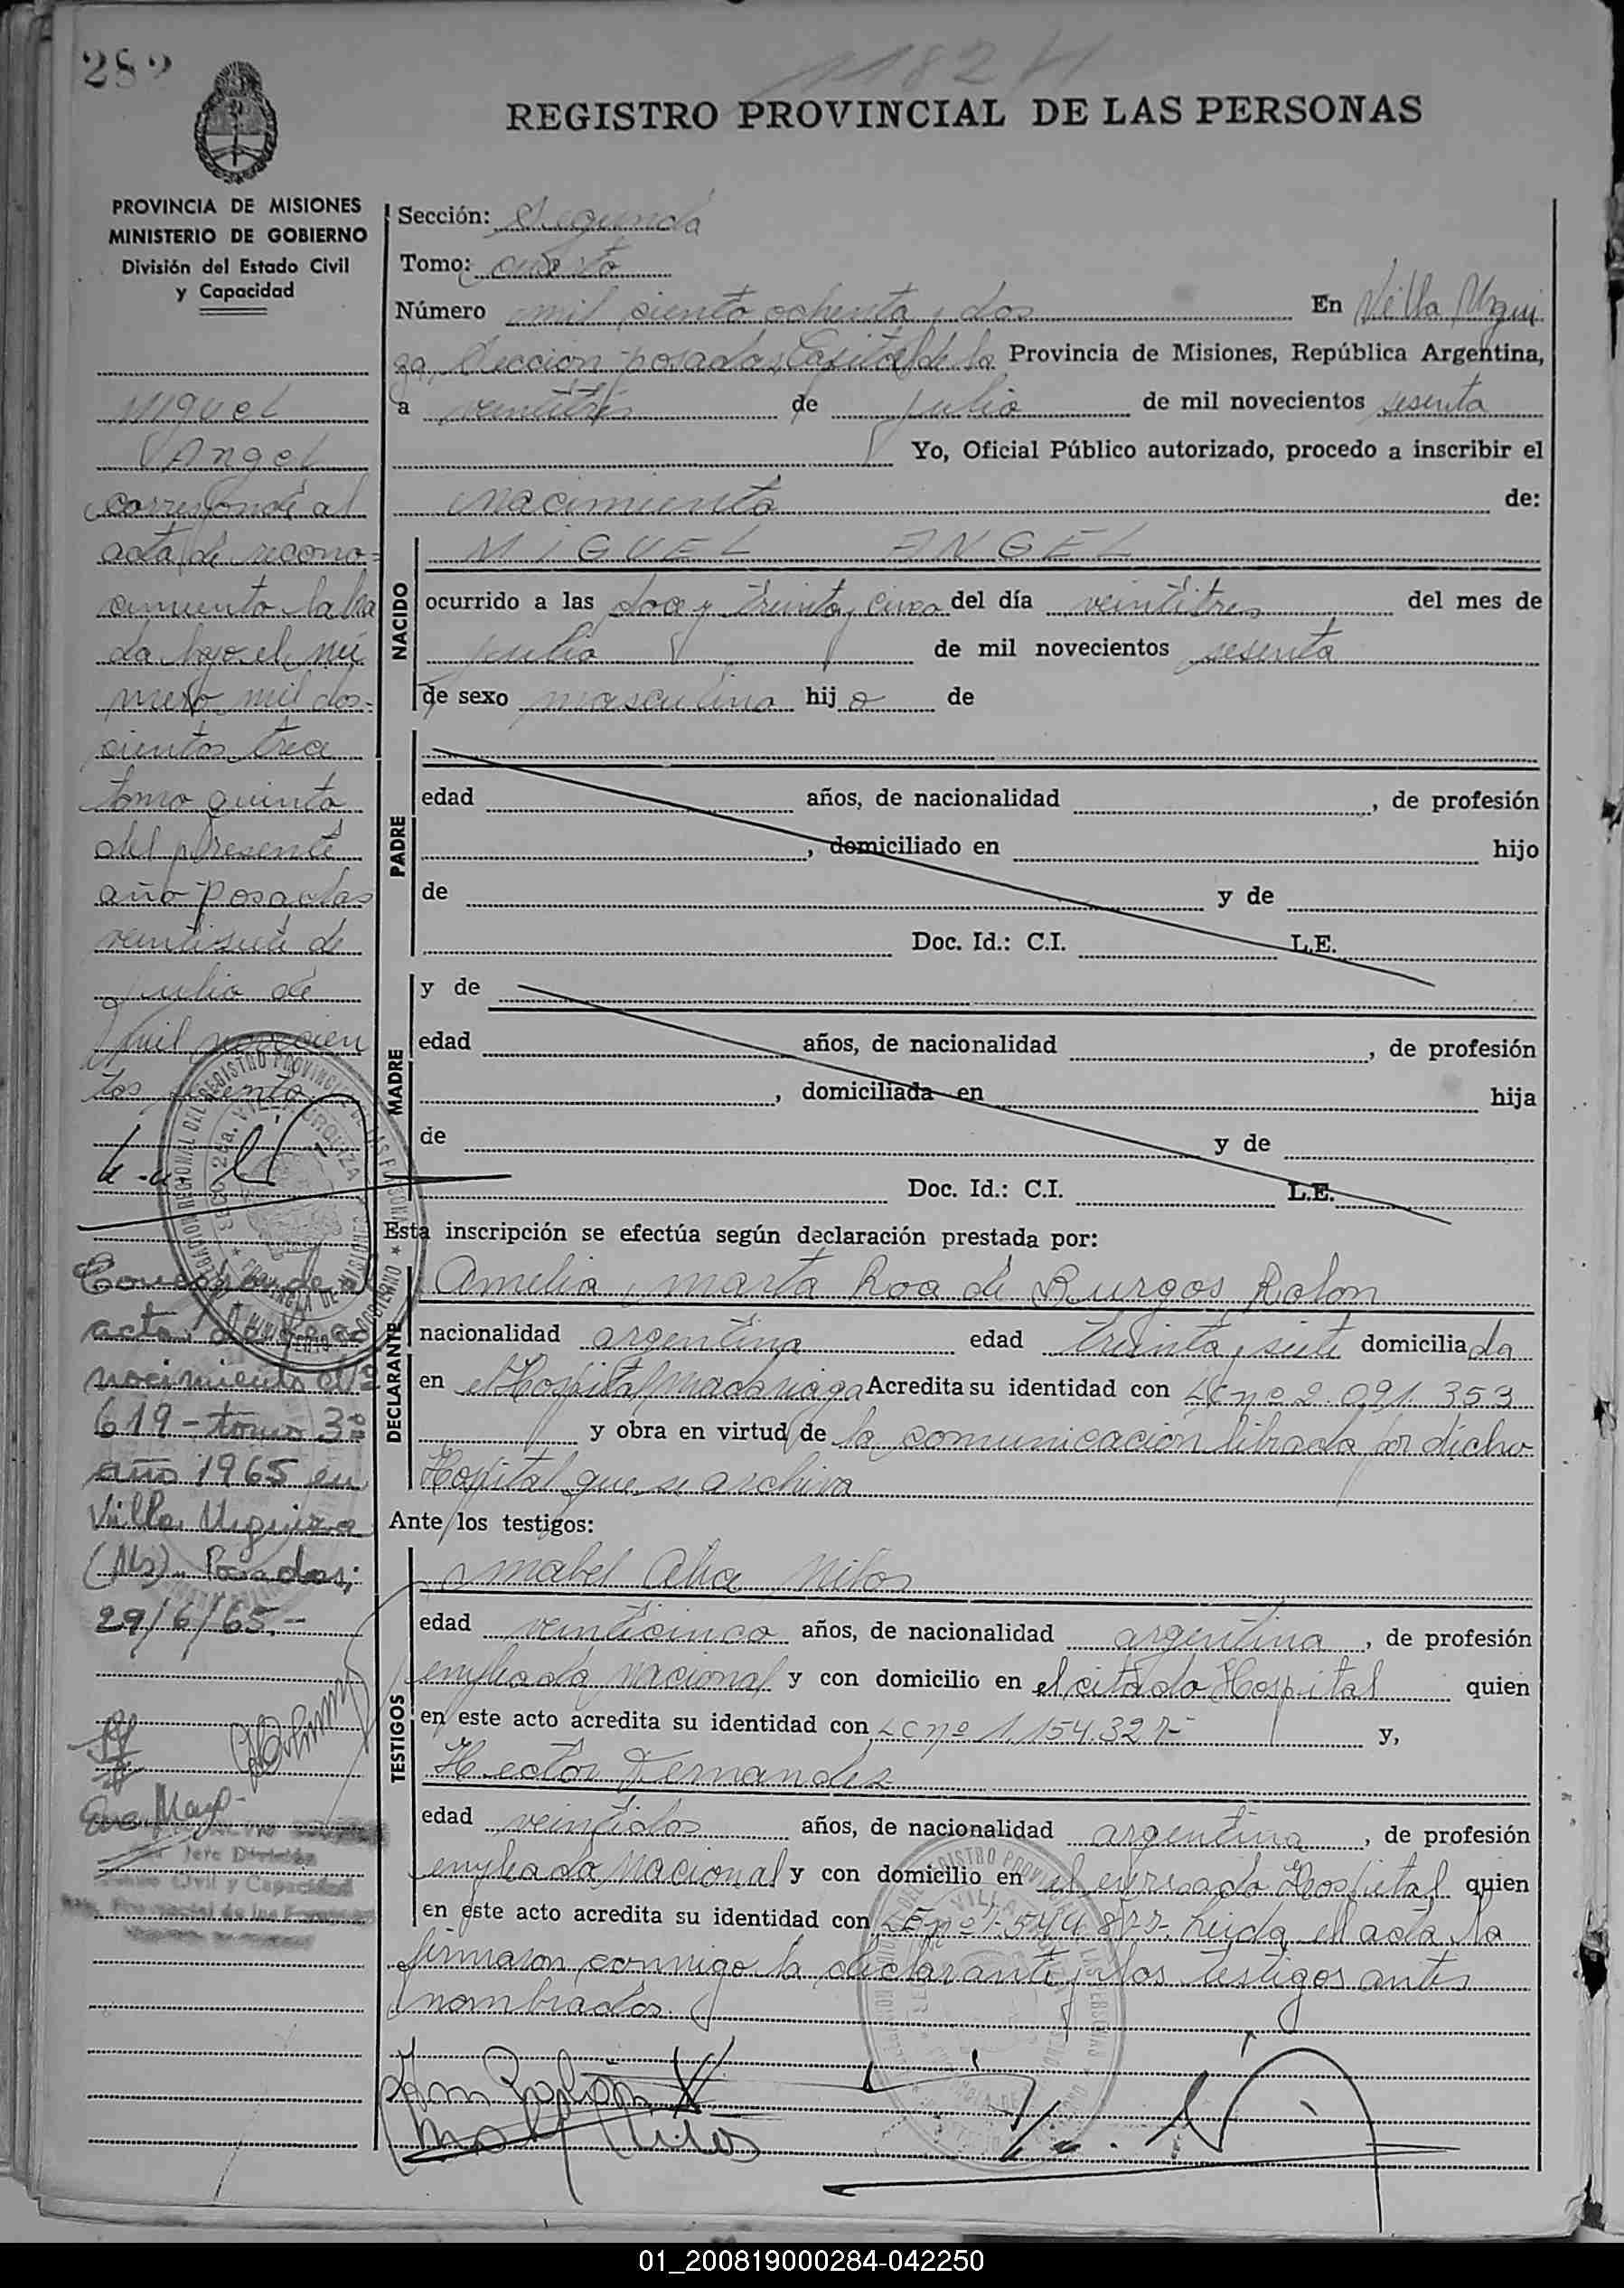 282
1182 H
REGISTRO PROVINCIAL DE LAS PERSONAS
PROVINCIA DE MISIONES
MINISTERIO DE GOBIERNO
División del Estado Civil
y Capacidad
Miguel
Angel
corresponde al
acta de recono=
cimiento labra
da bajo el nú
mero mil dos=
cientos trece
tomo quinto
del presente
año-Posadas
veintisiete de
julio de
mil novecien
tos sesenta
Corresponde a
acta de reco
nocimiento Nº
619-tomo 3º
año 1965 en
Villa Urquiza
(Ms). Posadas;
29/6/65.-
Jefe División
Civil y Capacidad
Sección: Segunda
Tomo: cuarto
Número mil ciento ochenta y dos En Villa Urqui
za, Seccion posadas, Capital de la Provincia de Misiones, República Argentina,
a veintitrés de julio de mil novecientos sesenta
Yo, Oficial Público autorizado, procedo a inscribir el
nacimiento de:
NACIDO
MIGUEL ANGEL
ocurrido a las doce y treinta y cinco del día veintitres del mes de
julio de mil novecientos sesenta
de sexo masculino hijo de
PADRE
edad años, de nacionalidad , de profesión
, domiciliado en hijo
de y de
Doc. Id.: C.I. L.E.
MADRE
y de
edad años, de nacionalidad , de profesión
, domiciliada en hija
de y de
Doc. Id.: C.I. L.E.
Esta inscripción se efectúa según declaración prestada por:
DECLARANTE
Amelia Marta Roa de Burgos Rolon
nacionalidad argentina edad treinta y siete domiciliada
en el Hospital Madariaga Acredita su identidad con LC nº 2.091.353
y obra en virtud de la comunicación librada por dicho
Hospital que se archiva
Ante los testigos:
TESTIGOS
Mabel Alia Nilos
edad veinticinco años, de nacionalidad argentina, de profesión
empleada nacional y con domicilio en el citado Hospital quien
en este acto acredita su identidad con LC nº 1.154.327- y,
Hector Fernandez
edad veintidos años, de nacionalidad argentina, de profesión
empleado nacional y con domicilio en el expresado Hospital quien
en este acto acredita su identidad con LE nº 7.544.877-. Leida el acta la
firmaron conmigo la declarante y los testigos antes
nombrados.
01_200819000284-042250